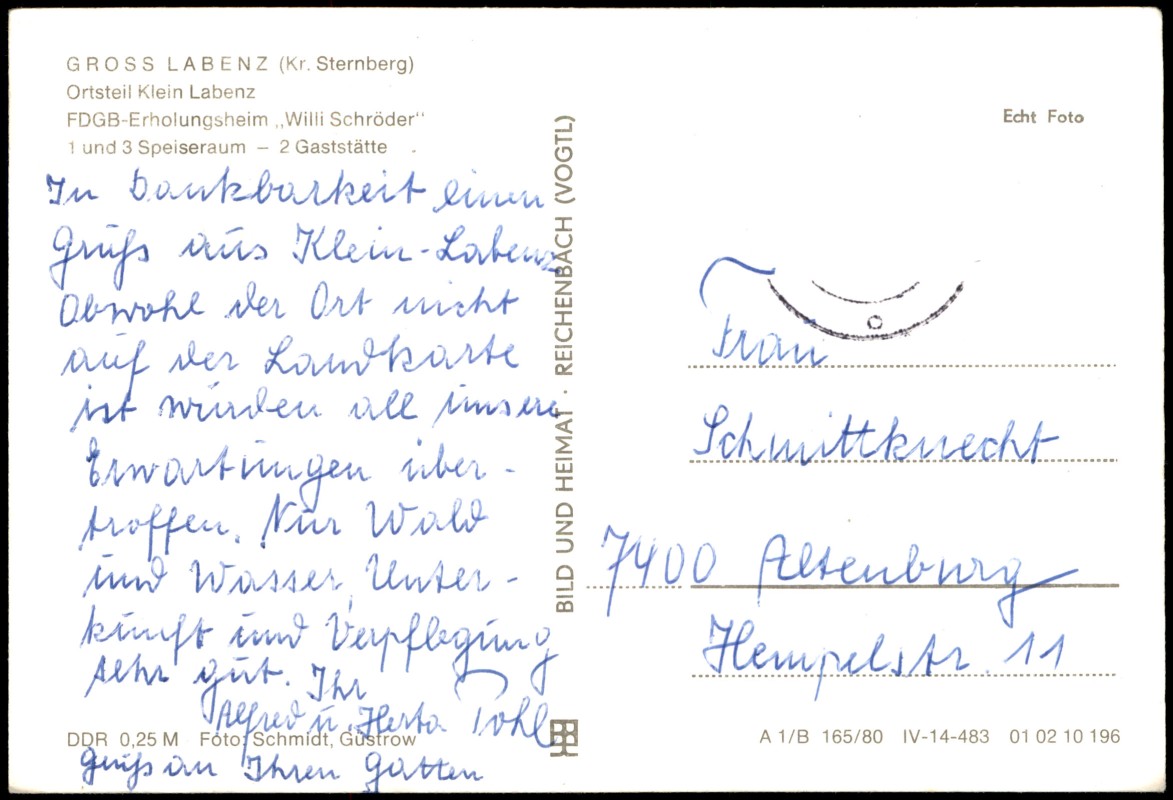 GROSS LABENZ (Kr. Sternberg)
Ortsteil Klein Labenz
FDGB-Erholungsheim „Willi Schröder“
1 und 3 Speiseraum – 2 Gaststätte
In Dankbarkeit einen
Gruß aus Klein-Labenz
Obwohl der Ort nicht
auf der Landkarte
ist wurden all unsere
Erwartungen über-
troffen. Nur Wald
und Wasser, Unter-
kunft und Verpflegung
sehr gut. Ihr
Alfred u. Herta Pohl
Gruß an Ihren Gatten
DDR 0,25 M Foto: Schmidt, Güstrow
BILD UND HEIMAT · REICHENBACH (VOGTL)
Echt Foto
Frau
Schmittknecht
7400 Altenburg
Hempelstr. 11
A 1/B 165/80 IV-14-483 01 02 10 196